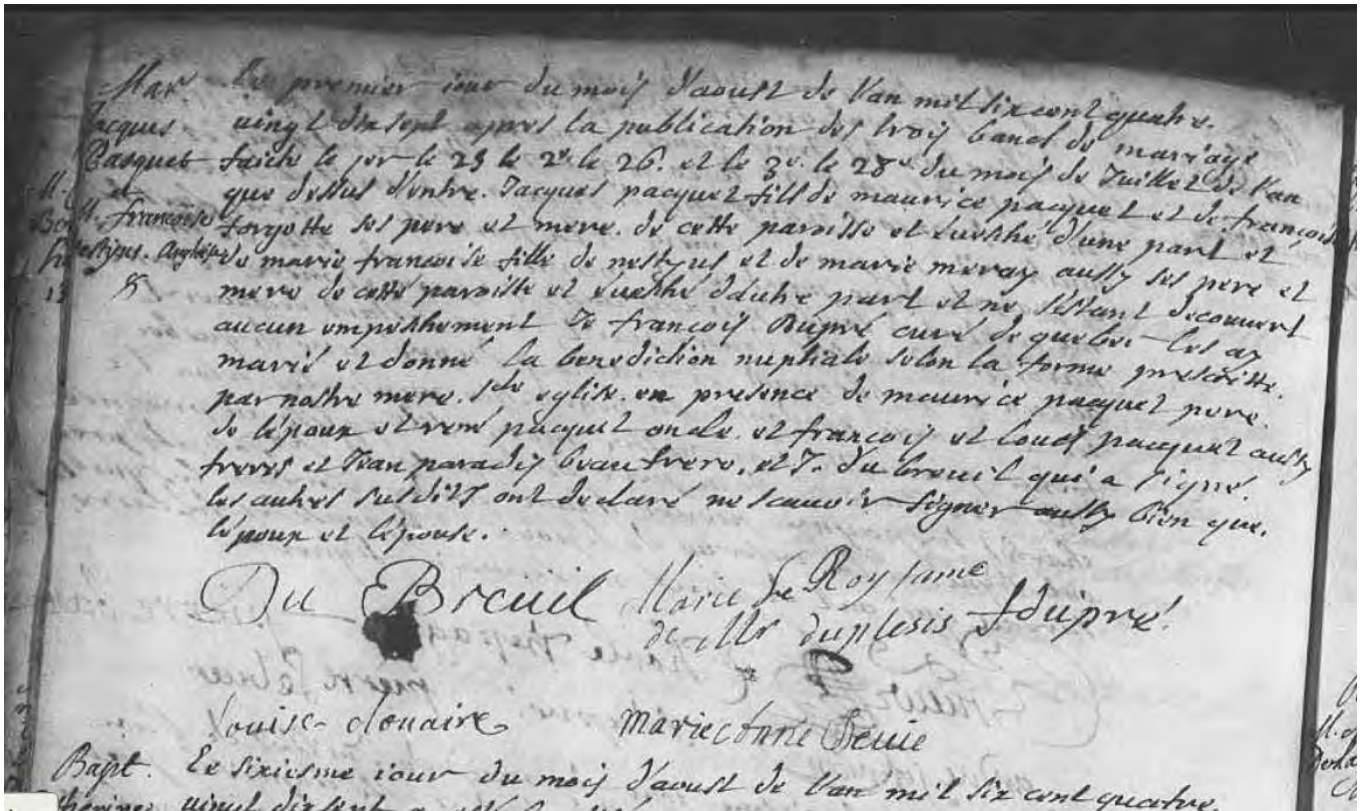 Mar.
Jacques
Pasquet
et
M. francoise
nestyus. Angloise
Le premier iour du mois d'aoust de l'an mil six cent quatre.
vingt dixsept apres la publication des trois bancs de mariage
faicte le 1er le 25 le 2e. le 26. et le 3e. le 28e du mois de Juillet de l'an
que dessus d'entre. Jacques pacquet fils de maurice pacquet et de francoise
forgette ses pere et mere. de cette paroisse et evesché d'une part et
de marie francoise fille de nestyus et de marie meray aussy ses pere et
mere de cette paroisse et evesché d'autre part et ne s'estant decouvert
aucun empeschement Je francois Dupré curé de quebec les ay
marié et donné la benediction nuptiale selon la forme prescritte.
par nostre mere. Ste eglise. en presence de maurice pacquet pere.
de lépoux et rené pacquet oncle. et francois et Louis pacquet aussy
freres et Jean paradis beau frere. et J. du breuil qui a signé.
les autres susdits ont declaré ne scavoir signer aussy bien que.
lépoux et lépouse.
Du Breuil Marie Le Roy fame
de Mr duplesis fdupré.
Louise douaire marie Anne
Bapt. Le sixiesme iour du mois d'aoust de l'an mil six cent quatre
vingt dixsept